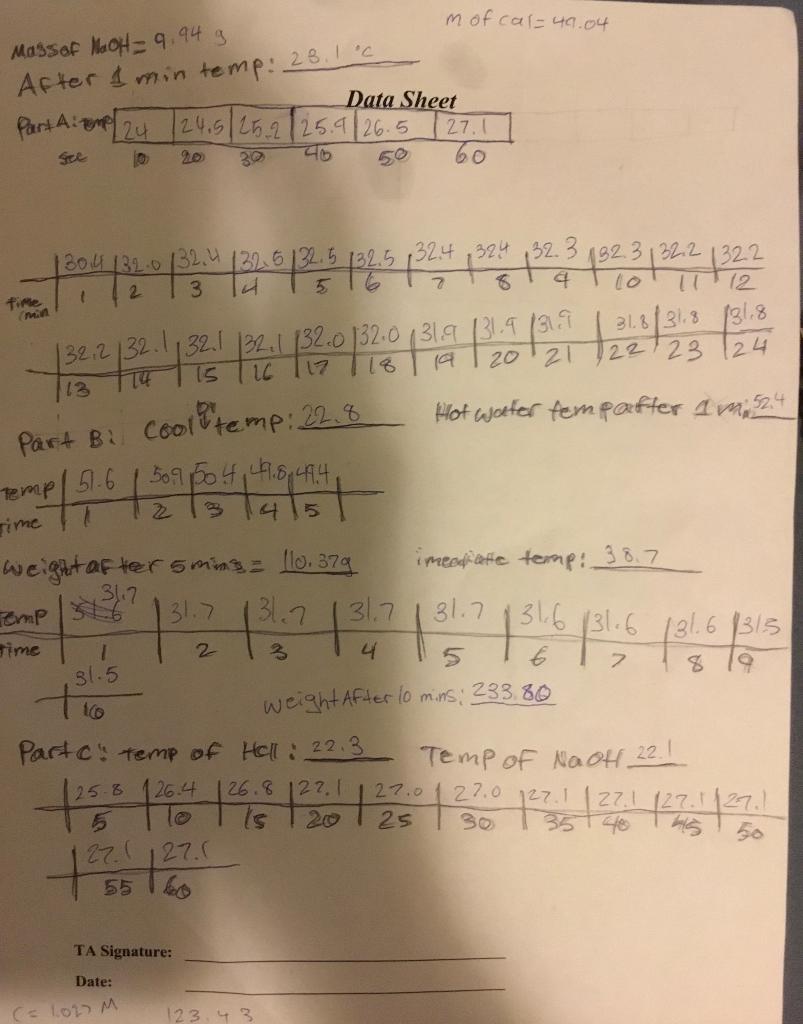 m of cal = 49.04
Mass of NaOH = 9.94 g
After 1 min temp: 28.1 °C
Data Sheet
Part A: temp 24 24.5 25.2 25.9 26.5 27.1
sec 10 20 30 40 50 60
30.4 32.0 32.4 32.5 32.5 32.5 32.4 32.4 32.3 32.3 32.2 32.2
time/min 1 2 3 4 5 6 7 8 9 10 11 12
32.2 32.1 32.1 32.1 32.0 32.0 31.9 31.9 31.9 31.8 31.8 31.8
13 14 15 16 17 18 19 20 21 22 23 24
Part B: Cool temp: 22.8 Hot water temp after 1 m: 52.4
temp 51.6 50.9 50.4 49.8 49.4
Time 1 2 3 4 5
weight after 5 mins = 110.37g imediate temp: 38.7
temp 31.7 31.7 31.7 31.7 31.7 31.6 31.6 31.6 31.5
Time 1 2 3 4 5 6 7 8 9
31.5
10
weight After 10 mins: 233.80
Part C: temp of HCl: 22.3 Temp of NaOH 22.1
25.8 26.4 26.8 27.1 27.0 27.0 27.1 27.1 27.1 27.1
5 10 15 20 25 30 35 40 45 50
27.1 27.1
55 60
TA Signature:
Date:
C = 1.027 M 123.43